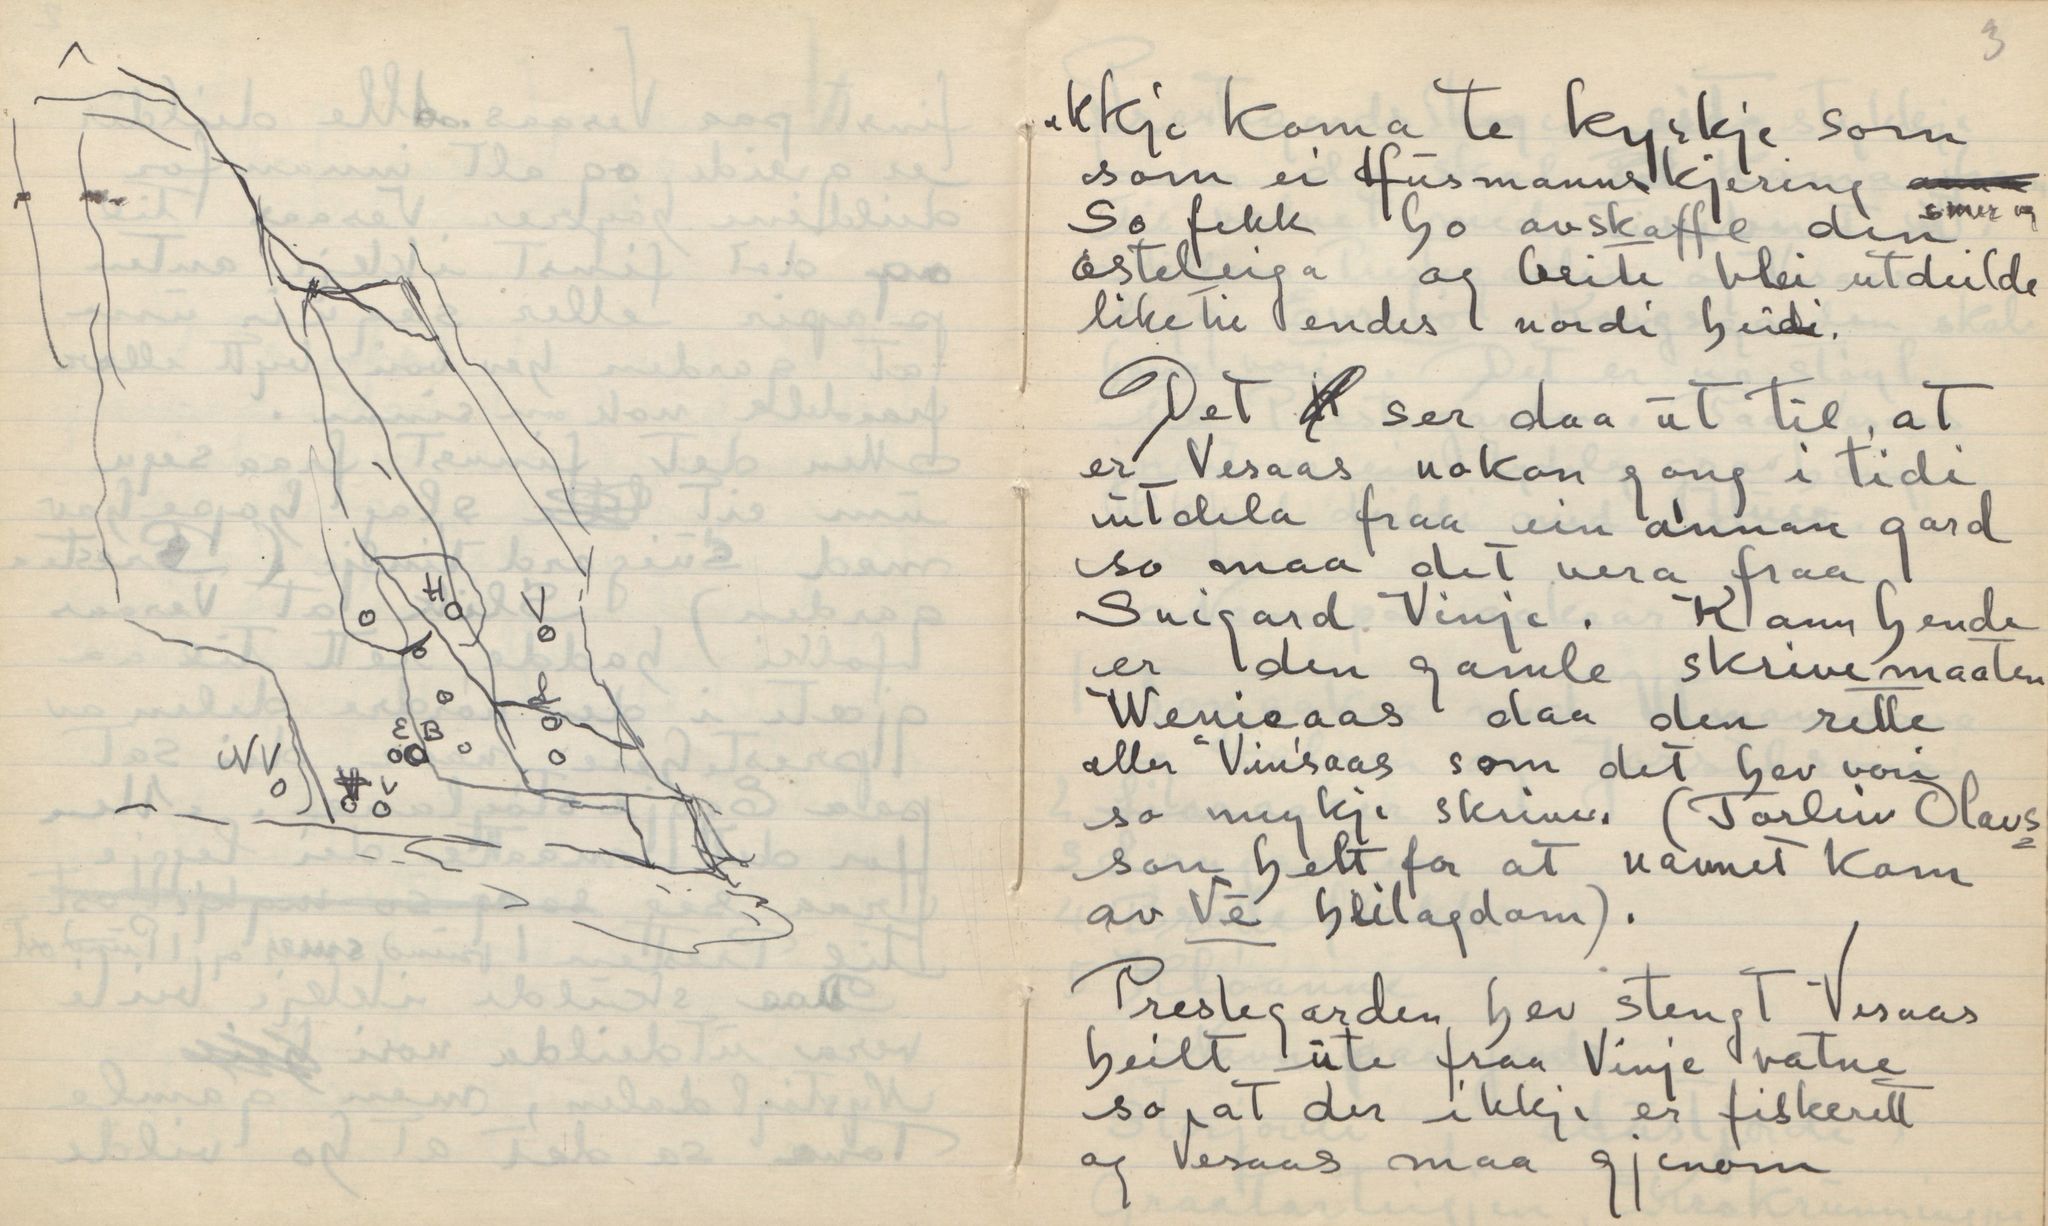 H
V
L
E B
NV
V
3
ikkje koma te kyrkje som
som ei Husmannskjering
smer og
So fekk ho avskaffe den
osteleiga og beite blei utdeilde
liketil endes nordi heidi.
Det ser daa ut til, at
er Vesaas nokon gong i tidi
utdela fraa ein annan gard
so maa det vera fraa
Suigard Vinje. Kann hende
er den gamle skrivemaaten
Wenisaas daa den rette
eller Vinsaas som det hev vori
so mykje skrive. (Torleiv Olavs
son helt for at navnet kom
av Vé heilagdom).
Prestegarden hev stengt Vesaas
heilt ute fraa Vinje vatne
so, at der ikkje er fiskerett
og Vesaas maa gjenom